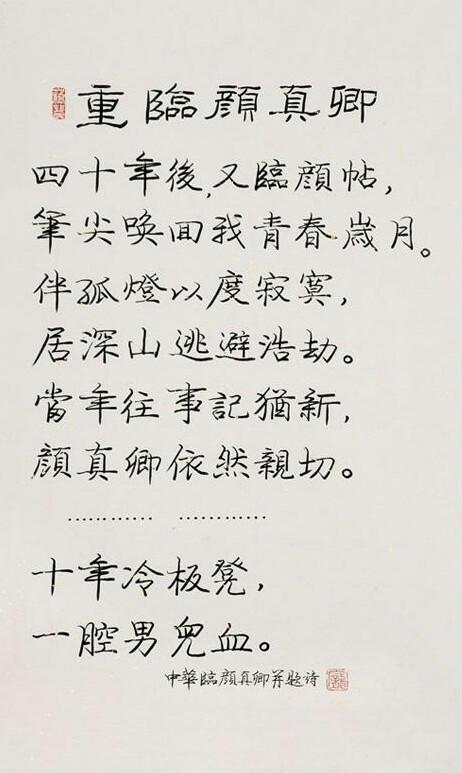 重臨顔真卿
四十年後,又臨顔帖,
筆尖喚回我青春歲月。
伴孤燈以度寂寞,
居深山逃避浩劫。
當年往事記猶新,
顔真卿依然親切。
………… …………
十年冷板凳,
一腔男兒血。
中華臨顔真卿并題诗